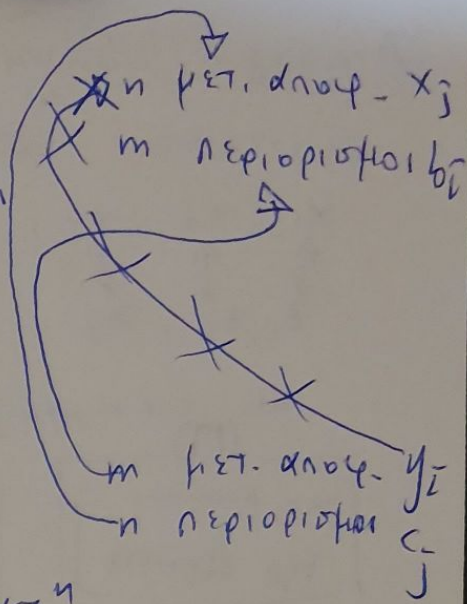 n μετ. αποφ. xj
m περιορισμοι bi
m μετ. αποφ. yi
n περιορισμοι cj